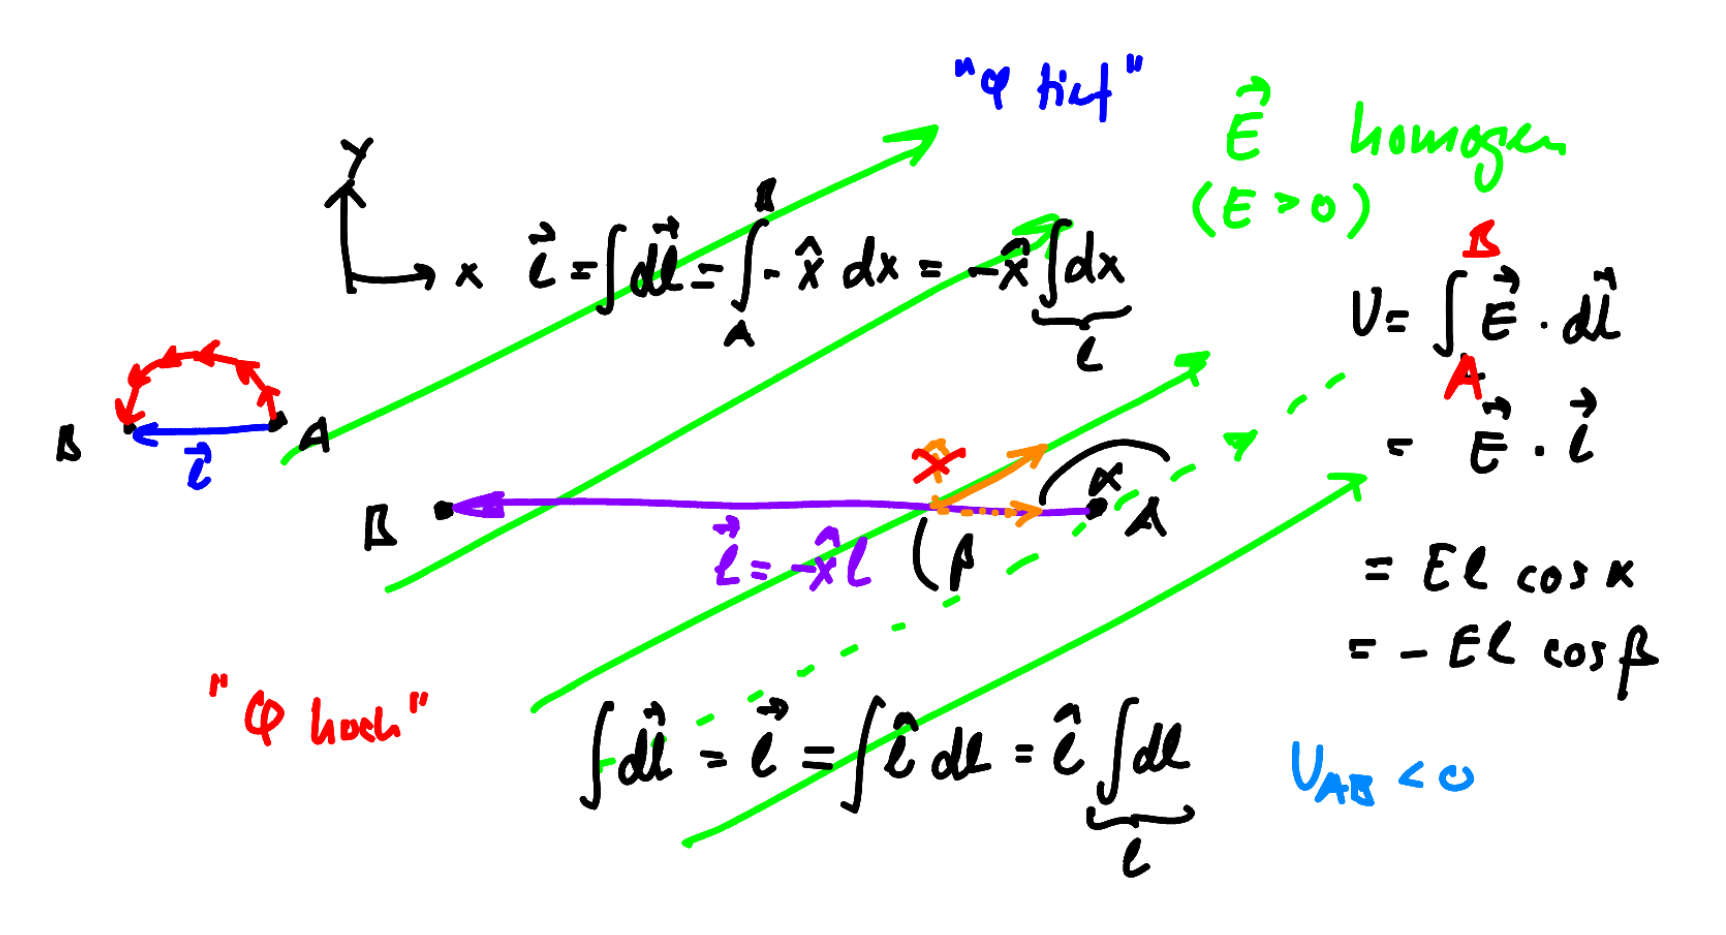 "φ tief"
E⃗ homogen
(E > 0)
Y
x
l⃗ = ∫ dl⃗ = ∫_A^B - x̂ dx = -x̂ ∫ dx
l
U = ∫_A^B E⃗ · dl⃗
= E⃗ · l⃗
B
A
l⃗
α
B
A
l⃗ = -x̂ l
β
= El cos α
= - El cos β
"φ hoch"
∫ dl⃗ = l⃗ = ∫ l̂ dl = l̂ ∫ dl
l
U_AB < 0